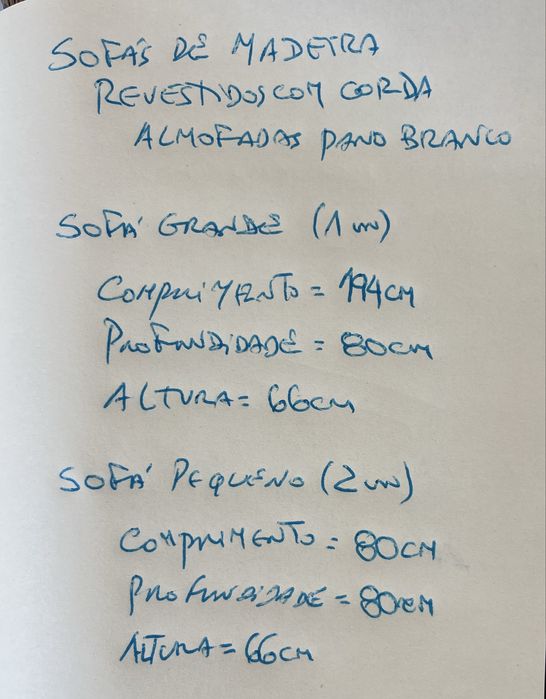 SOFÁS DE MADEIRA
REVESTIDOS COM CORDA
ALMOFADAS PANO BRANCO
SOFÁ GRANDE (1 un)
COMPRIMENTO = 194CM
PROFUNDIDADE = 80CM
ALTURA = 66CM
SOFÁ PEQUENO (2 un)
COMPRIMENTO = 80CM
PROFUNDIDADE = 80CM
ALTURA = 66CM